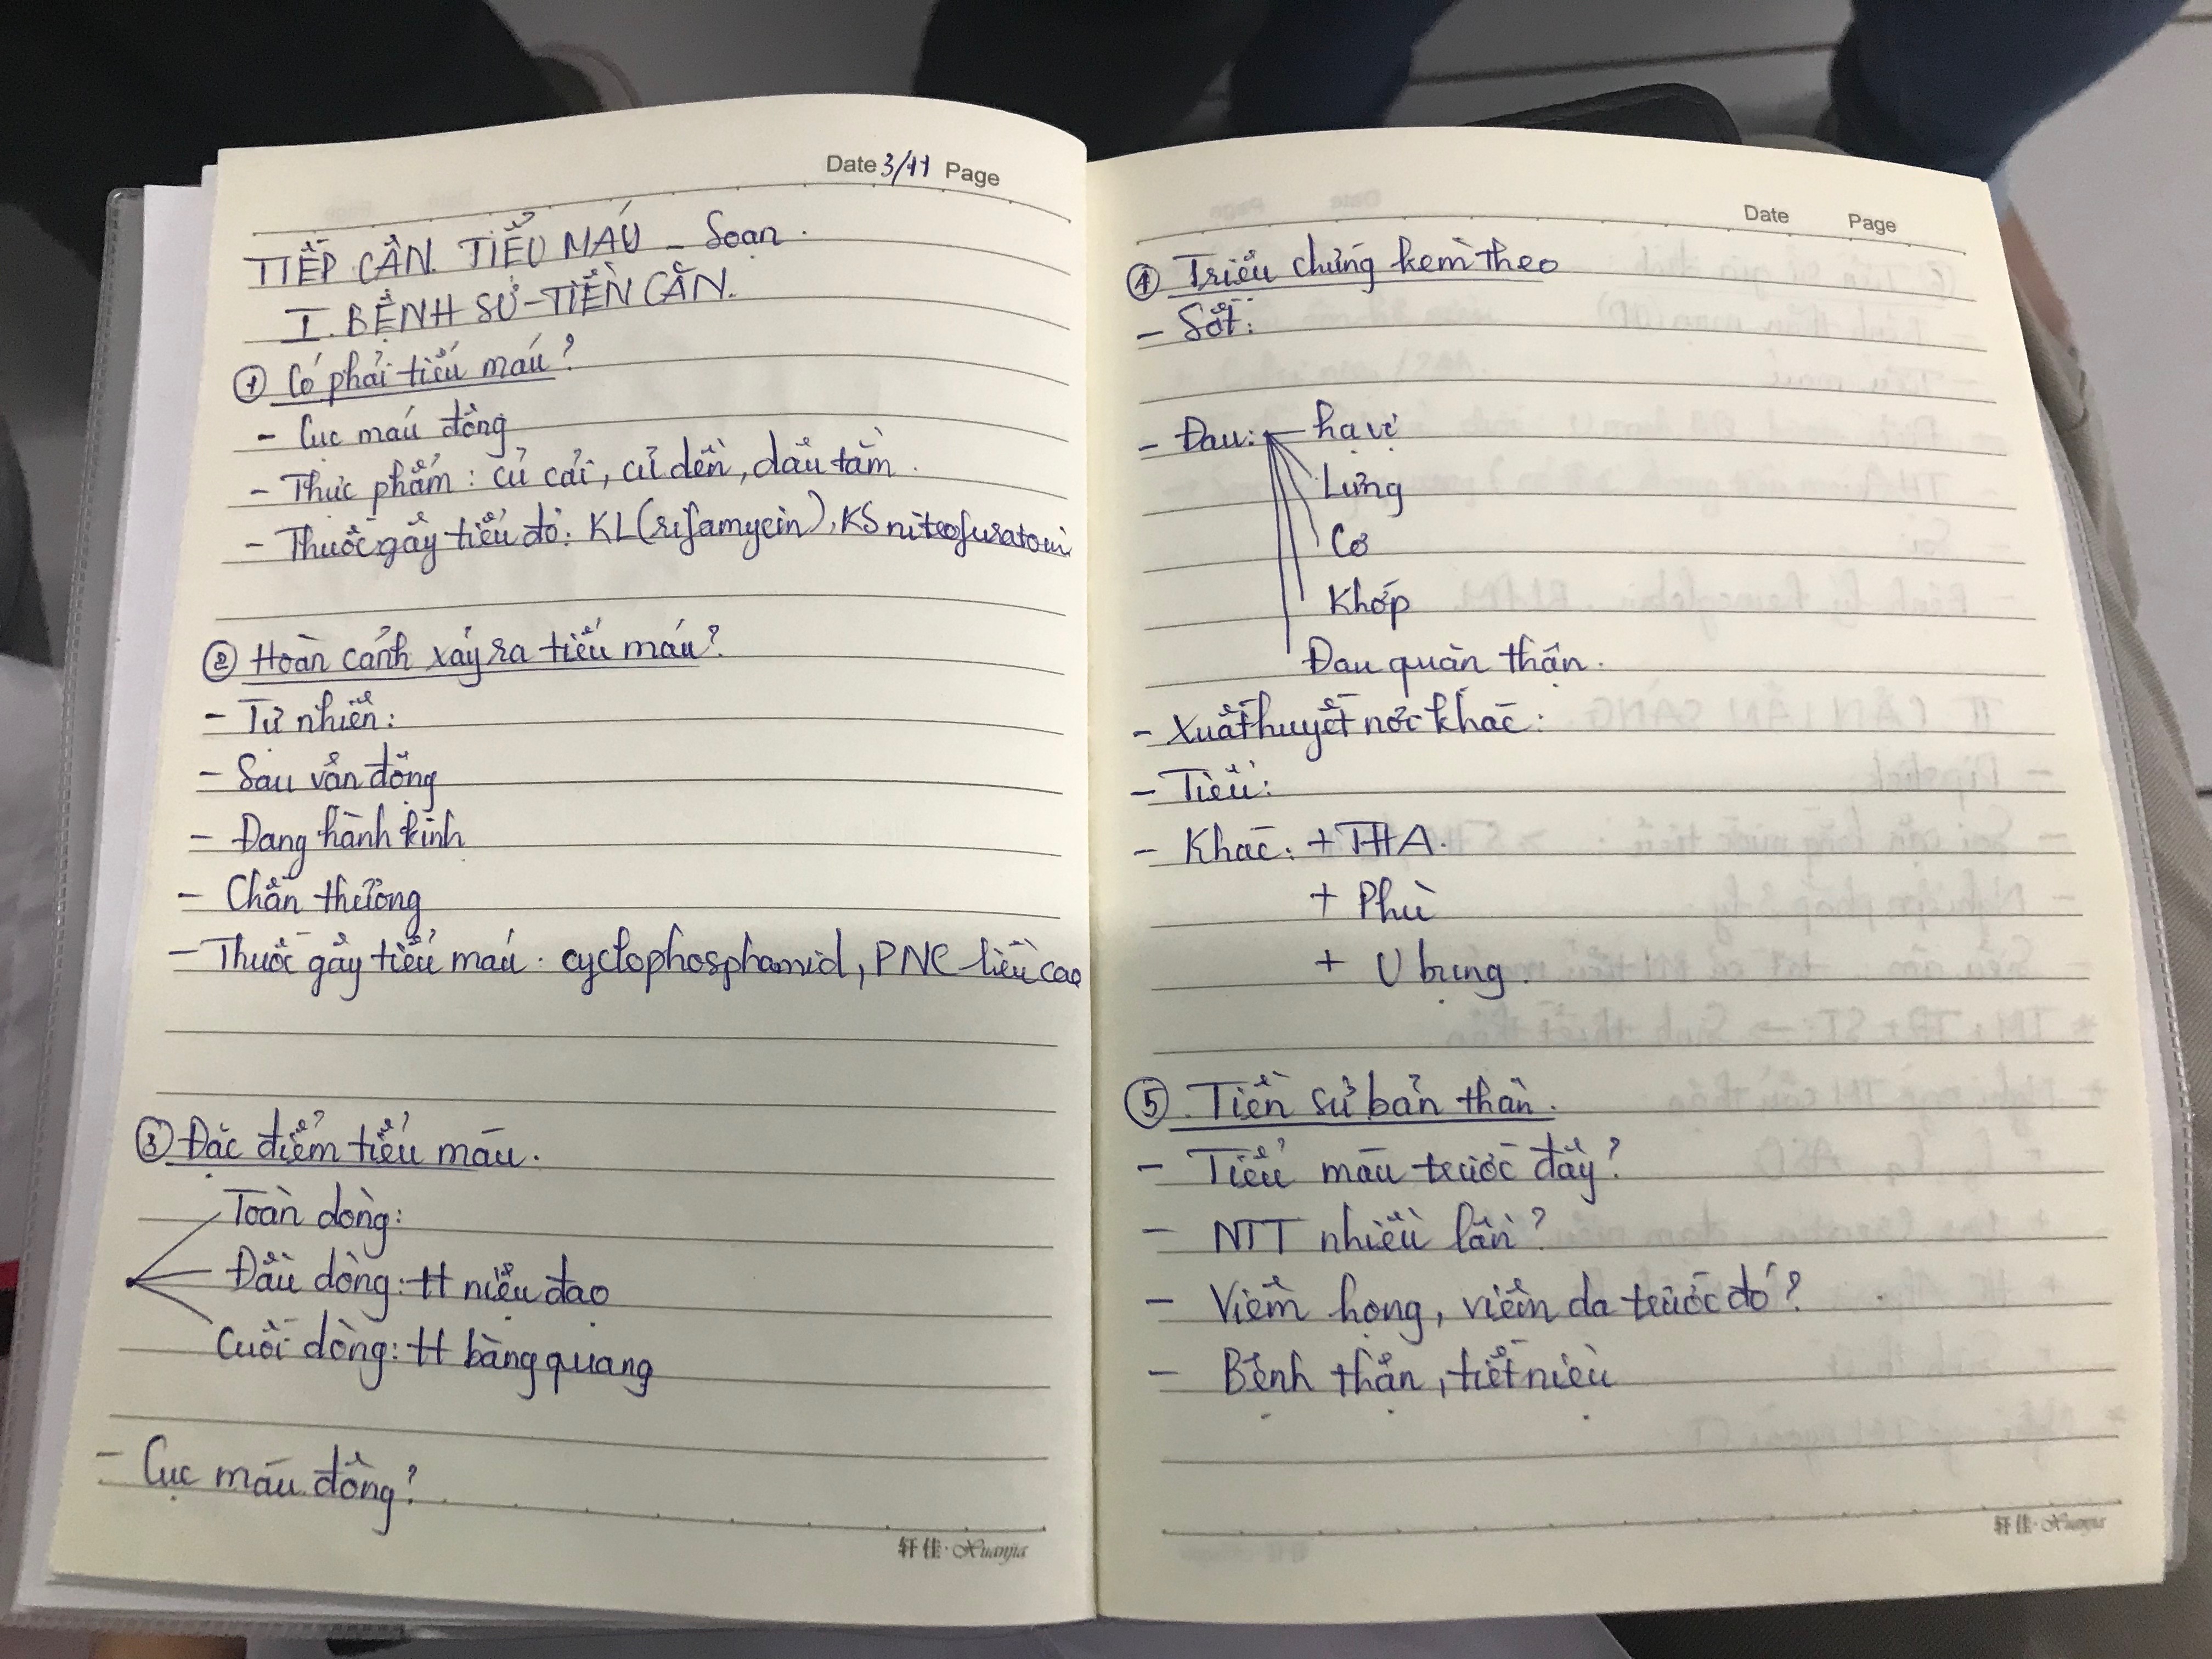 Date 3/11 Page
TIẾP CẬN TIỂU MÁU - Soạn.
I. BỆNH SỬ - TIỀN CĂN.
① Có phải tiểu máu?
- Cục máu đông
- Thực phẩm: củ cải, củ dền, dâu tằm.
- Thuốc gây tiểu đỏ: KL (rifamycin), KS nitrofuratoin
② Hoàn cảnh xảy ra tiểu máu?
- Tự nhiên:
- Sau vận động
- Đang hành kinh
- Chấn thương
- Thuốc gây tiểu máu: cyclophosphamid, PNC liều cao
③ Đặc điểm tiểu máu.
Toàn dòng:
Đầu dòng: tt niệu đạo
Cuối dòng: tt bàng quang
- Cục máu đông?
轩佳·Xuanjia
Date Page
④ Triệu chứng kèm theo
- Sốt:
- Đau: hạ vị
Lưng
Cơ
Khớp
Đau quặn thận.
- Xuất huyết nơi khác:
- Tiểu:
- Khác: + THA.
+ Phù
+ U bụng.
⑤ Tiền sử bản thân.
- Tiểu máu trước đây?
- NTT nhiều lần?
- Viêm họng, viêm da trước đó?
- Bệnh thận, tiết niệu
轩佳·Xuanjia